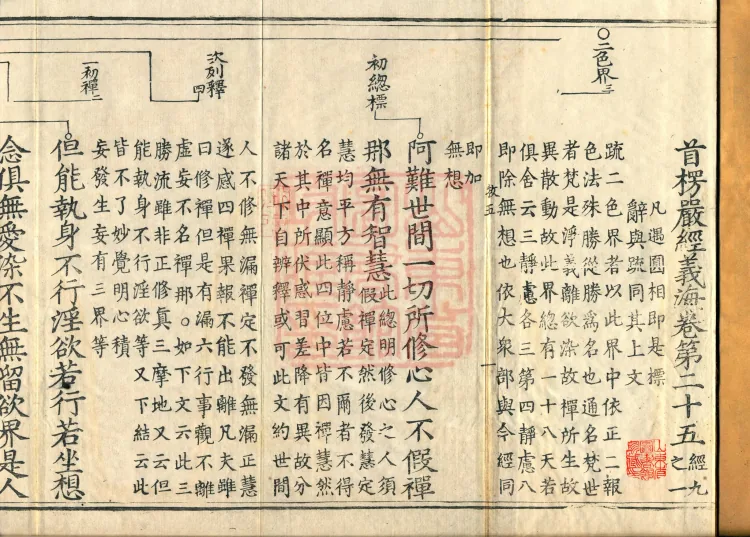 首楞嚴經義海卷第二十五經九之一
凡遇圓相即是標
辭與疏同其上文
〇二色界三
疏二色界者若以此界中依正二報
色法殊勝從勝爲名也通名梵世
者梵是淨義離欲染故禪所生故
異散動故此界總有一十八天若
俱舍云三靜慮各三第四靜慮八
即除無想也依大衆部與今經同
即加
無想
初總標
阿難世間一切所修心人不假禪
那無有智慧此總明修心之人須
假禪定然後發慧定
慧均平方稱靜慮若不爾者不得
名禪意顯此四位中皆因禪慧然
於其中所伏惑習差降有異故分
諸天下自辨釋或可此文約世間
次列釋四
人不修無漏禪定不發無漏正慧
遂感四禪果報不能出離凡夫雖
曰修禪但是有漏六行事觀不離
虛妄不名禪那〇如下文云此三
勝流雖非正修真三摩地又云但
能執身不行淫欲等又下結云此
皆不了妙覺明心積
妄發生妄有三界等
一初禪二
但能執身不行淫欲若行若坐想
念俱無愛染不生無留欲界是人